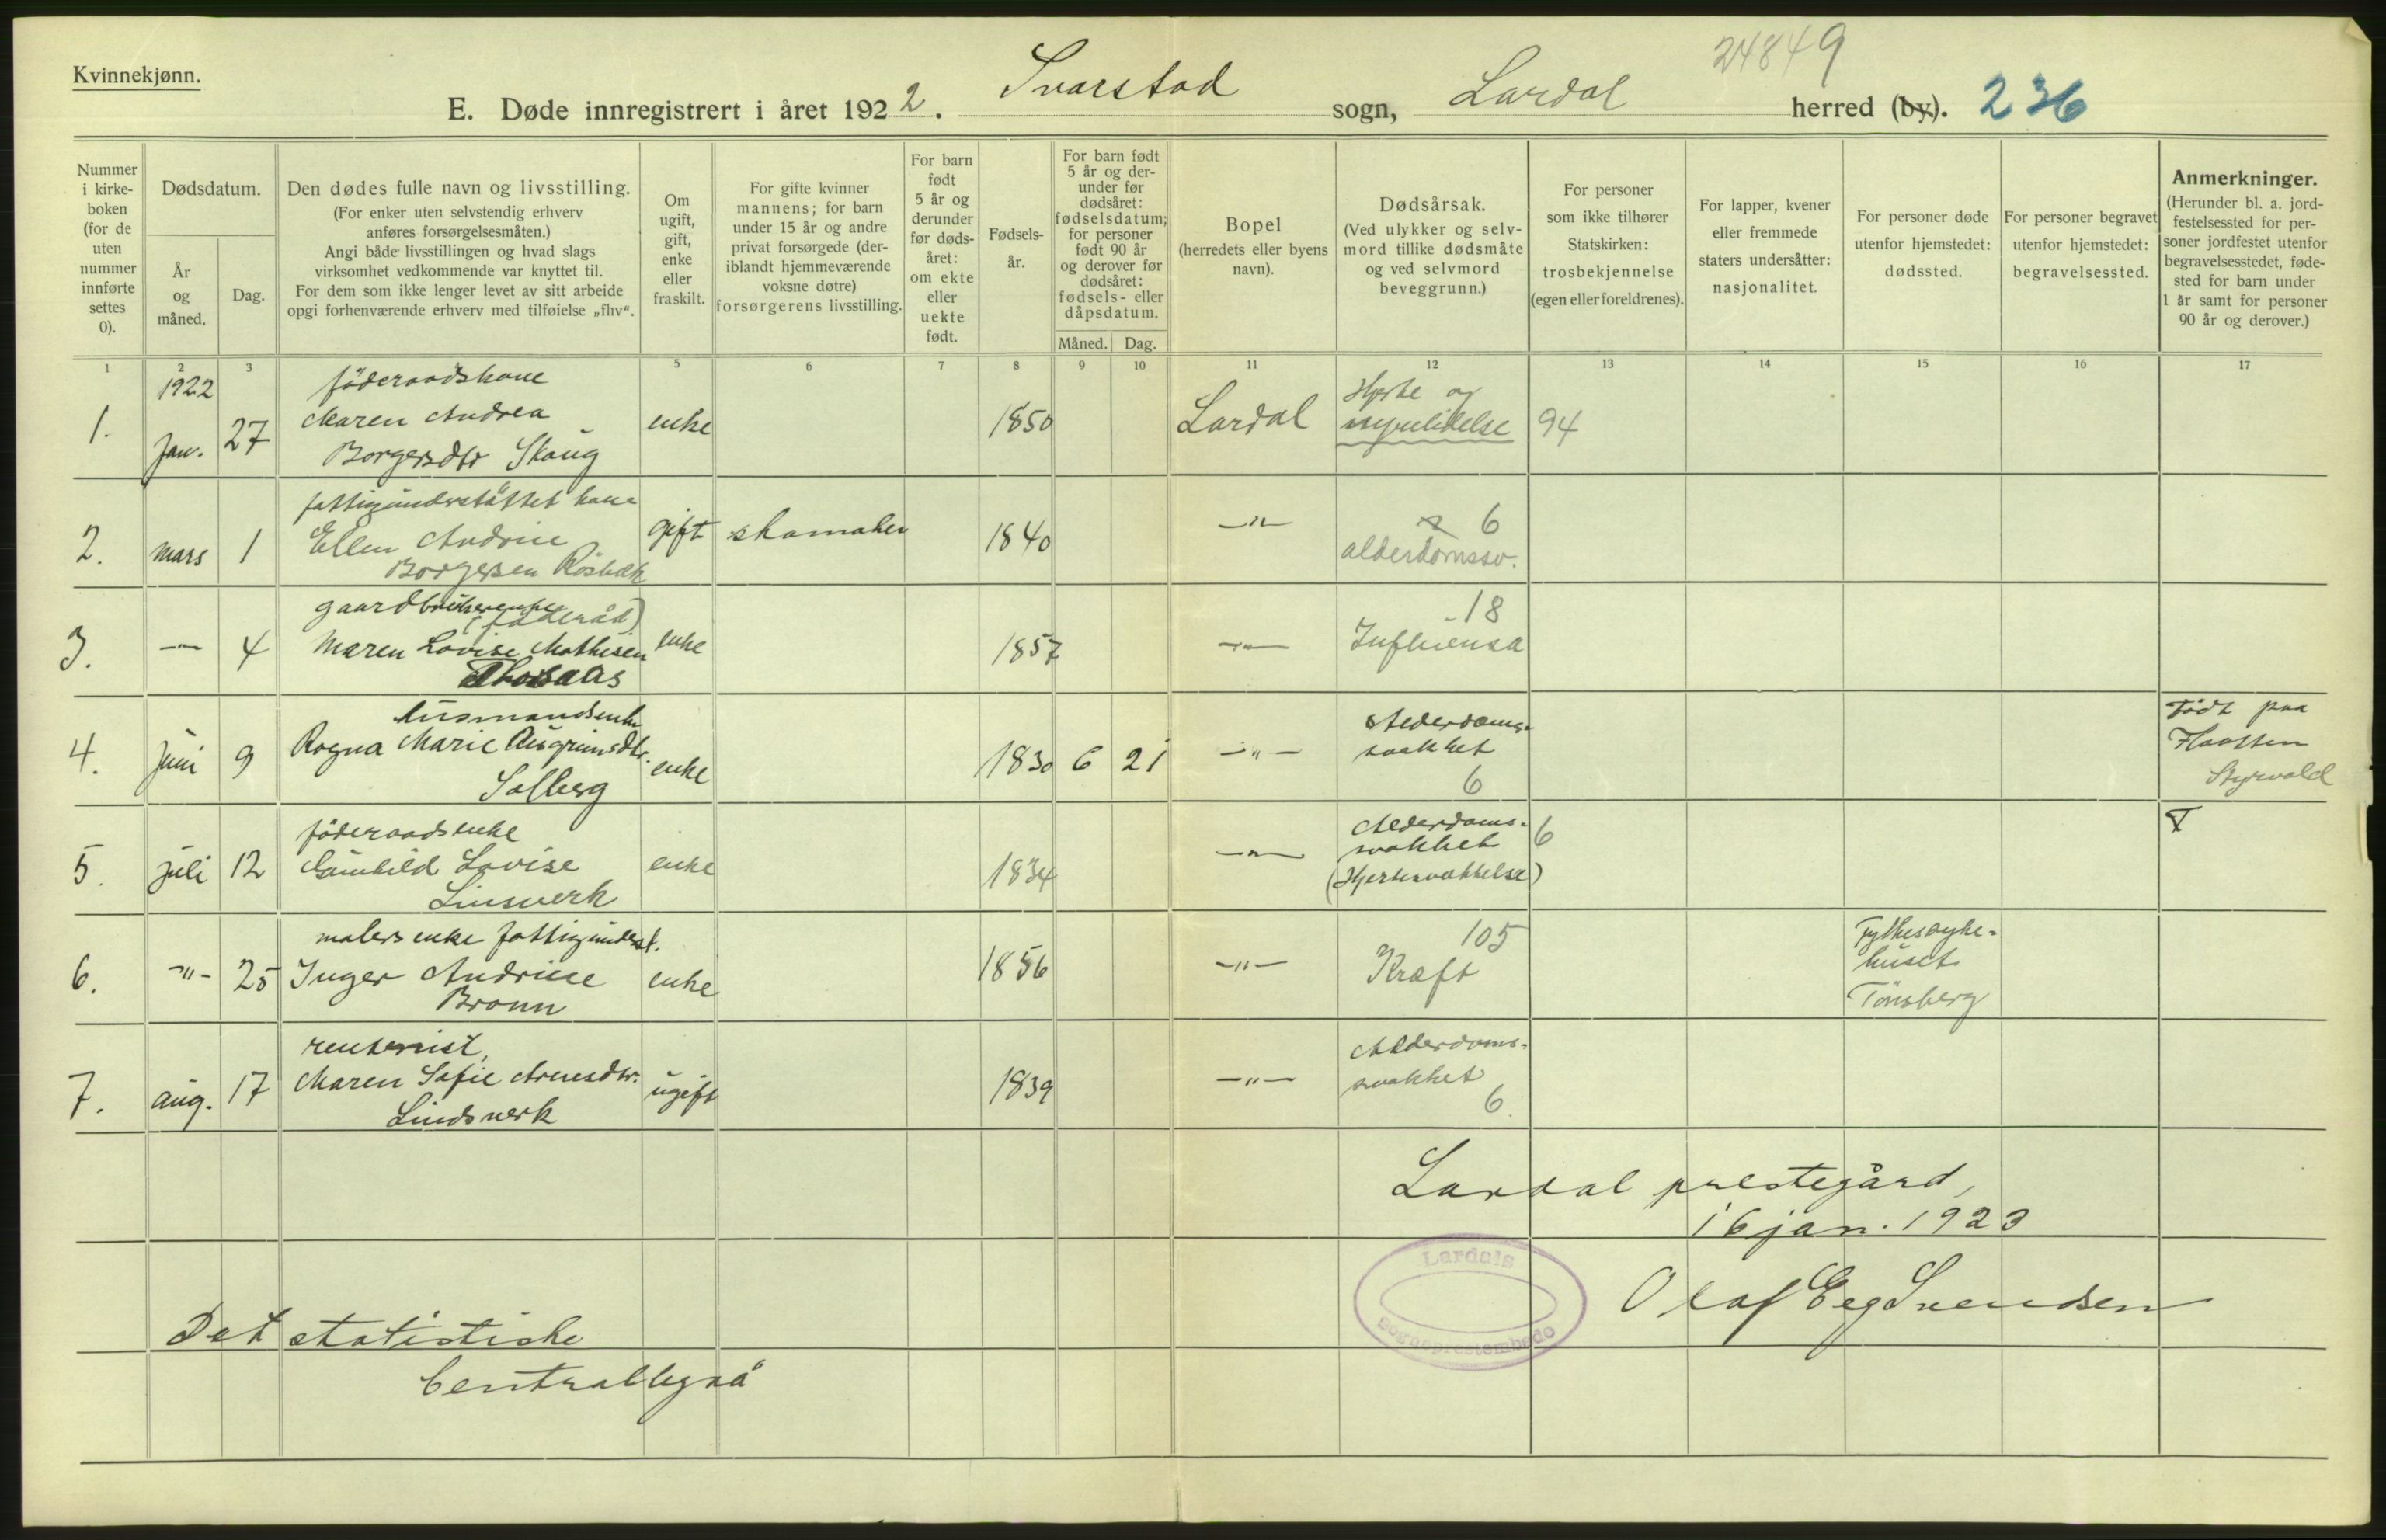 24849
Kvinnekjønn.
E. Døde innregistrert i året 1922. Svarstad sogn, Lardal herred (by). 236
Nummer i kirke-boken (for de uten nummer innførte settes 0).
Dødsdatum.
År og måned.
Dag.
Den dødes fulle navn og livsstilling.
(For enker uten selvstendig erhverv anføres forsørgelsesmåten.)
Angi både livsstillingen og hvad slags virksomhet vedkommende var knyttet til.
For dem som ikke lenger levet av sitt arbeide opgi forhenværende erhverv med tilføielse „fhv“.
Om ugift, gift, enke eller fraskilt.
For gifte kvinner mannens; for barn under 15 år og andre privat forsørgede (der-iblandt hjemmeværende voksne døtre) forsørgerens livsstilling.
For barn født 5 år og derunder før døds-året: om ekte eller uekte født.
Fødsels-år.
For barn født 5 år og der-under før dødsåret: fødselsdatum; for personer født 90 år og derover før dødsåret: fødsels- eller dåpsdatum.
Måned. Dag.
Bopel (herredets eller byens navn).
Dødsårsak.
(Ved ulykker og selv-mord tillike dødsmåte og ved selvmord beveggrunn.)
For personer som ikke tilhører Statskirken: trosbekjennelse (egen eller foreldrenes).
For lapper, kvener eller fremmede staters undersåtter: nasjonalitet.
For personer døde utenfor hjemstedet: dødssted.
For personer begravet utenfor hjemstedet: begravelsessted.
Anmerkninger.
(Herunder bl. a. jord-festelsessted for per-soner jordfestet utenfor begravelsesstedet, føde-sted for barn under 1 år samt for personer 90 år og derover.)
1 2 3 5 6 7 8 9 10 11 12 13 14 15 16 17
1922
1. Jan. 27 föderaadskone
Maren Andrea
Borgersdtr Skaug
enke 1850 Lardal
Hjerte og
nyrelidelse 94
2. mars 1 fattigunderstøttet kone
Ellen Andrine
Borgersen
gift skomaker 1840 —"—
6
alderdomssv.
3. —"— 4 gaardbrukerenke
(föderåd)
Maren Lovise Mathisen
Thorsaas
enke 1857 —"—
18
Influensa
4. juni 9 husmandsenke
Ragna Marie Asgrimsdtr.
Solberg
enke 1830 6 21 —"—
Alderdoms-
svakhet
6
Født paa
Styrvold
5. juli 12 föderaadsenke
Gunhild Lovise
Linsverk
enke 1834 —"—
Alderdoms-
svakhet 6
(Hjertesvækkelse)
6. —"— 25 malers enke fattigunderst.
Inger Andrine
Bronn
enke 1856 —"—
105
Kræft
Fylkessyke-
huset
Tönsberg
7. aug. 17 rentenist,
Maren Sofie Arnesdtr.
Lindsverk
ugift 1839 —"—
Alderdoms-
svakhet
6.
Lardal prestegård,
16 jan. 1923
Lardals
sogneprestembede
Olaf Eeg Svendsen
Det statistiske
Centralbyrå